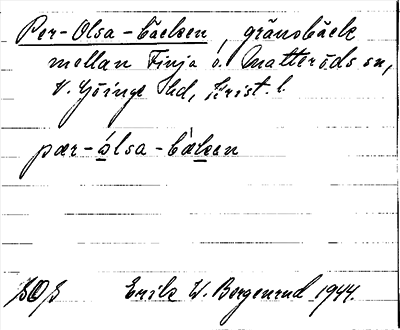 Per-Olsa-bäcken, gränsbäck
mellan Finja o. Matteröds sn,
V. Göinge hd, Krist. l.
pær-ólsa-bæken
Erik W. Bergenrud 1944.